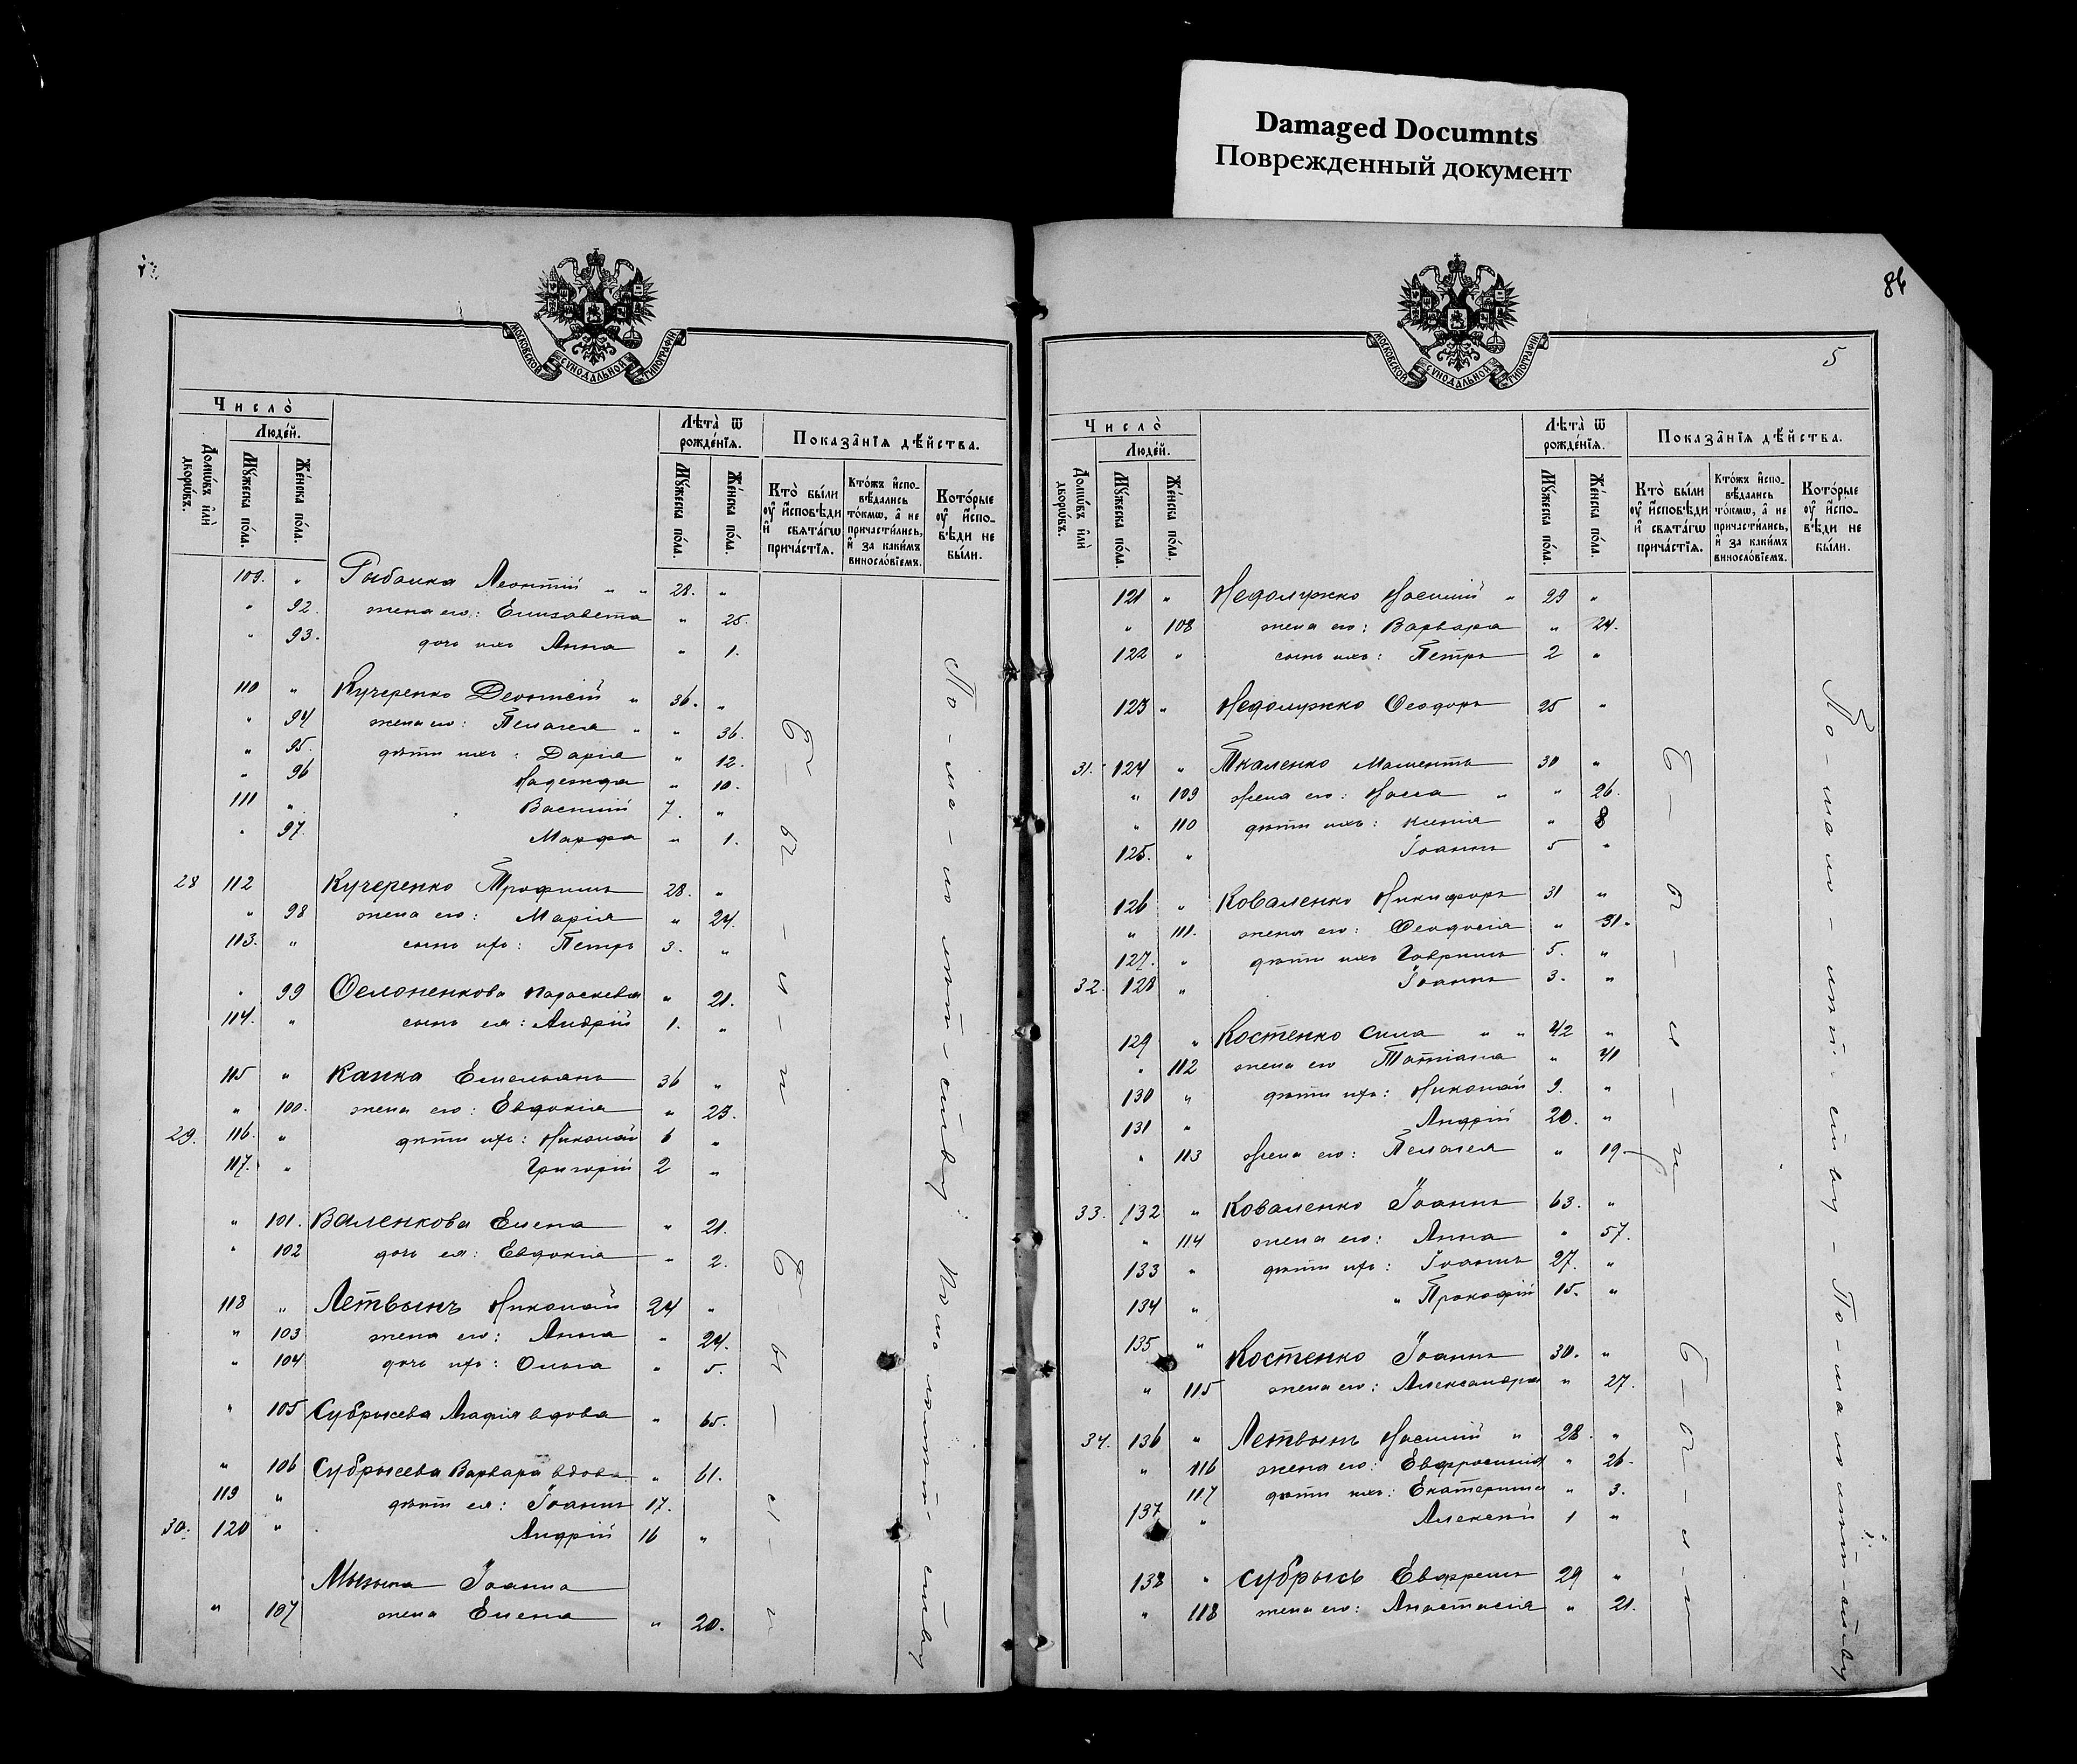 Damaged Documnts
Поврежденный документ
86
5
МОСКОВСКОЙ СѴНОДАЛЬНОЙ ТИПОГРАФІИ
Число̀
Люде́й.
Домѡ́въ и҆лѝ дворѡ́въ.
Мꙋ́жеска по́ла.
Же́нска по́ла.
Лѣта̀ ѿ рожде́нїѧ.
Мꙋ́жеска по́ла.
Же́нска по́ла.
Показа̑нїѧ дѣ́йства.
Кто̀ бы́ли оу҆ и҆сповѣди и҆ свѧта́гѡ прича́стїѧ.
Кто́жъ и҆спо-вѣ́дались то́кмѡ, а҆ не причасти́лись, и҆ за каки́мъ винослоⷡ҇вїемъ.
Кото́рые оу҆ и҆спо-вѣди не бы́ли.
109. " Рыбалка Леонтій " " 28. "
" 92. жена его: Елизавета " 25.
" 93. дочь ихъ Анна " 1.
110 " Кучеренко Леонтій " 36. "
" 94 жена его: Пелагея " " 36.
" 95. дѣти ихъ: Дарія " 12.
" 96 Надежда " 10.
111 " Василій 7. "
" 97. Марфа " 1.
28 112 Кучеренко Трофимъ 28. "
" 98 жена его: Марія " 24.
113. " сынъ ихъ: Петръ 3. "
" 99 Параскева " 21.
114. " сынъ ея: Андрій 1. "
115 " Капка Емельянъ 36 "
" 100. жена его: Евдокія " 23.
29. 116. " дѣти ихъ: Николай 6 "
117. " Григорій 2 "
" 101. Валенкова Елена " 21.
" 102 дочь ея: Евдокія " 2.
118 " Летвынъ Николай 24 "
" 103 жена его: Анна " 24.
" 104 дочь ихъ: Ольга " 5.
" 105 Субрысева Агафія вдова " 65.
" 106 Субрысева Варвара вдова " 61.
119 " дѣти ея: Іоаннъ 17.
30. 120 " Андрій 16 "
Іоанна
" 107 жена Елена " 20.
Б - ы - л - и
Б - ы - л - и
Число̀
Люде́й.
Домѡ́въ и҆лѝ дворѡ́въ.
Мꙋ́жеска по́ла.
Же́нска по́ла.
Лѣта̀ ѿ рожде́нїѧ.
Мꙋ́жеска по́ла.
Же́нска по́ла.
Показа̑нїѧ дѣ́йства.
Кто̀ бы́ли оу҆ и҆сповѣди и҆ свѧта́гѡ прича́стїѧ.
Кто́жъ и҆спо-вѣ́дались то́кмѡ, а҆ не причасти́лись, и҆ за каки́мъ винослоⷡ҇вїемъ.
Кото́рые оу҆ и҆спо-вѣди не бы́ли.
МОСКОВСКОЙ СѴНОДАЛЬНОЙ ТИПОГРАФІИ
121 " Недолужко Василій " 29 "
" 108 жена его: Варвара " 24.
122 " сынъ ихъ: Петръ 2 "
123 " Недолужко Ѳеодоръ 25 "
31. 124 " Ткаленко 30 "
" 109 жена его: " " 26.
" 110 дѣти ихъ: Ксенія " 8
125. " Іоаннъ 5 "
126 " Коваленко Никифоръ 31 "
" 111. жена его: Ѳеодосія " 31.
127. " дѣти ихъ Гавріилъ 5. "
32. 128 " Іоаннъ 3. "
129 " Костенко Сила " " 42 "
" 112 жена его Татіана " 41
130 " дѣти ихъ: Николай 9. "
131 " Андрій 20. "
" 113 жена его: Пелагея " 19.
33. 132 " Коваленко Іоаннъ 63. "
" 114 жена его: Анна " 57.
133 " дѣти ихъ: Іоаннъ 27. "
134 " " Прокофій 15. "
135 " Костенко Іоаннъ 30. "
" 115 жена его: Александра " 27.
34. 136 " Летвынъ Василій " 28. "
" 116 жена его: Евфросинія " 26.
117 дѣти ихъ: Екатерина " 3.
137 " Алексѣй 1 "
138 " Субрысь Ефремъ 29 "
" 118 жена его: Анастасія " 21.
Б - ы - л - и
Б - ы - л - и